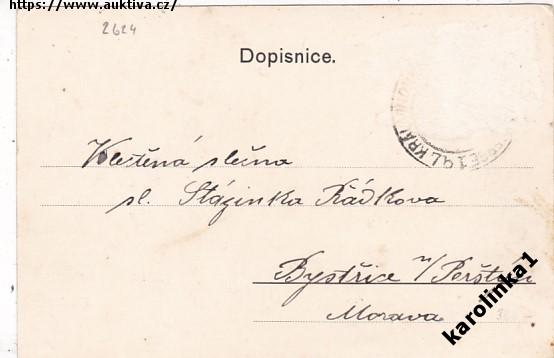 https://www.auktiva.cz/
2624
Dopisnice.
Ctěná slečna
sl. Stázinka Řádkova
Bystřice n/Perštei
Morava
karolinka1